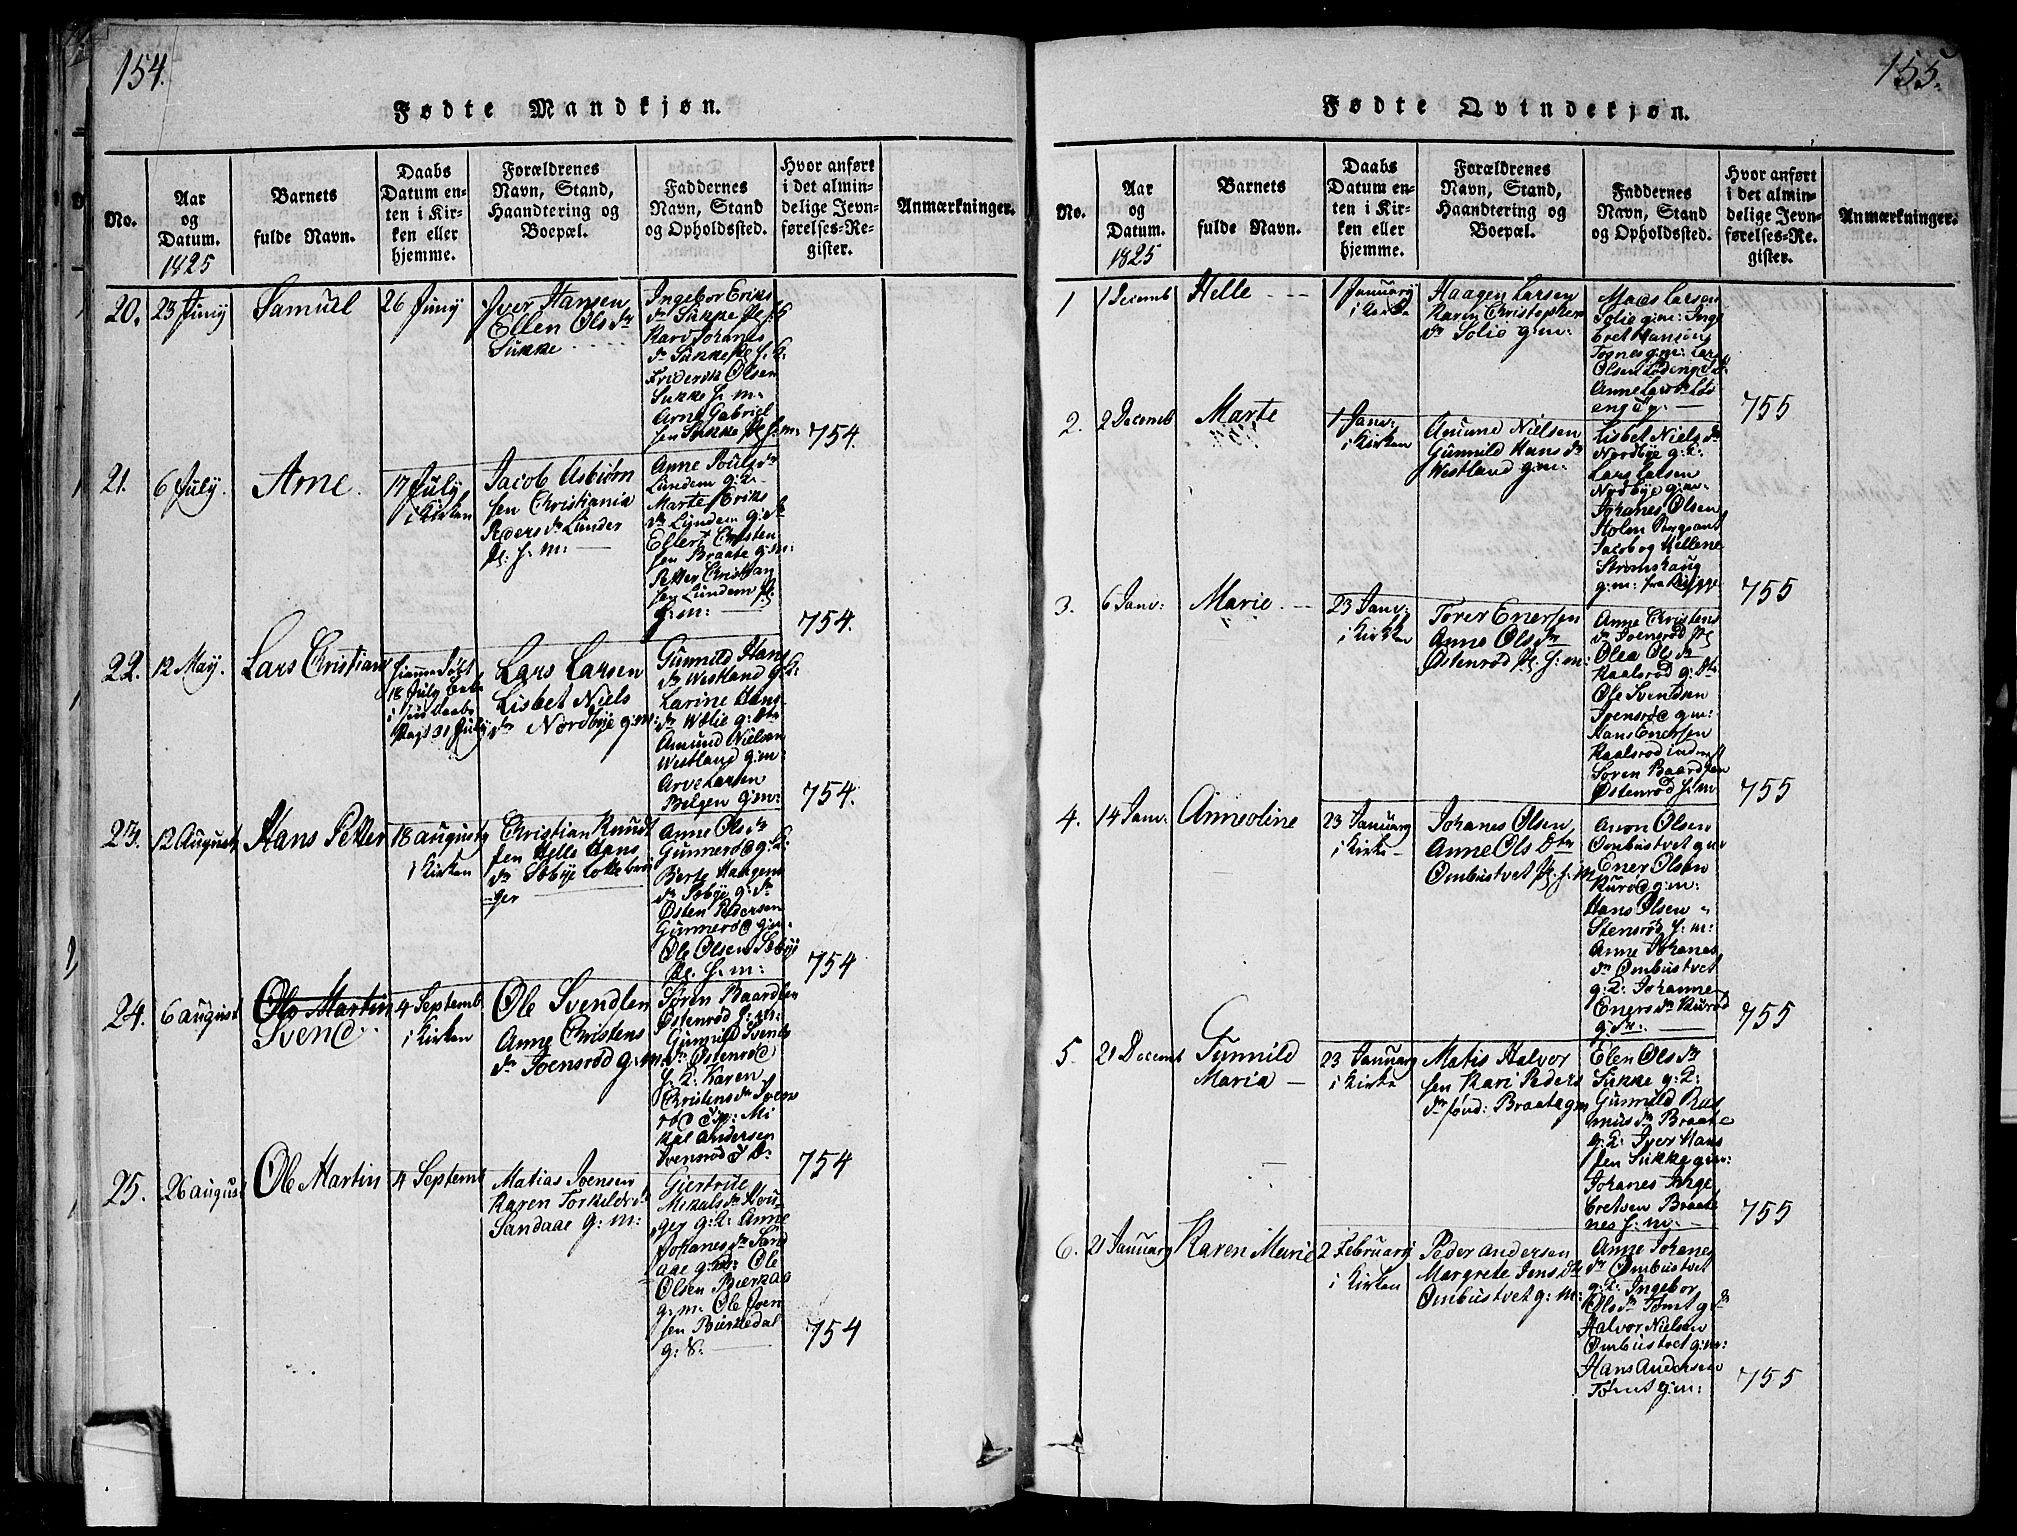 154.
Fødte Mandkjøn.
No.
Aar
og
Datum.
1825
Barnets
fulde Navn.
Daabs
Datum en-
ten i Kir-
ken eller
hjemme.
Forældrenes
Navn, Stand,
Haandtering og
Boepæl.
Faddernes
Navn, Stand
og Opholdssted.
Hvor anført
i det almin-
delige Jevn-
førelses-Re-
gister.
Anmærkninger.
20.
23 Juny
Samuel
26 Juny
Iver Hansen
Ellen Ols dr
Sukke
Ingebor Eriks
dr Sukke
Kari Johanes
dr Sukke
Friderik Olsen
Sukke f. m:
Arne Gabriel
sen Sukke pl. f: m:
754.
21.
6 July.
Arne.
17 July
i Kirken
Jacob Asbiørn
sen Christiania
Peders dr Lunder
pl. f: m:
Anne Pouls dr
Lundem g: K
Marte Eriks
dr Lundem g:
Ellert Christen
sen Braate g: m:
Petter Christian
sen Lundem pl.
f: m:
754.
22.
12 May.
Lars Christian
hiemmedøbt
18 July
31 July
Lars Larsen
Lisbet Niels
dr Nordbye g: m:
Gunnild Hans
dr Westland g: K:
Larine Hans
dr Wølie g: Dtr
Amund Nielsen
Westland g: m:
Arve Larsen
Belgen g: m:
754.
23.
12 August
Hans Petter
18 august
i Kirken
Christian Knudt
sen Helle Hans
dr Sobye
ger
Anne Ols dr
Gunnerød g: K:
Berte Haagens
dr Sobye g:
Østen Pedersen
Gunnerød g: m:
Ole Olsen Sobye
pl. f: m:
754
24.
6 august
Ole Martin
Svend
4 Septemb
i Kirken
Ole Svendsen
Anne Christens
dr Ivensrød g: m
Søren Baardsen
Østenrød f: m:
Gunnild Svends
dr Østenrød
f. K: Karen
Christens dr Ivens
rød
kal Andersen
Ivensrød
754
25.
26 august
Ole Martin
4 Septemb
Matias Ivensen
Karen Torkilds dr
Sandaae g: m:
Giertrue
Mikals dr Hou
gen g: K: Anne
Johanes dr Sand
aae g: m: Ole
Olsen Bierkaas
g: m: Ole Iven
sen Birkedal
g: K:
754
155.
Fødte Qvindekjøn.
No.
Aar
og
Datum.
1825
Barnets
fulde Navn.
Daabs
Datum en-
ten i Kir-
ken eller
hjemme.
Forældrenes
Navn, Stand,
Haandtering og
Boepæl.
Faddernes
Navn, Stand
og Opholdssted.
Hvor anført
i det almin-
delige Jevn-
førelses-Re-
gister.
Anmærkninger.
1
1 Decemb
Helle
1 January
i Kirke
Haagen Larsen
Karen Christophers
dr Solie g: m:
Mads Larsen
Solie g: m: Inge
bret Hansen
Tosnes g: m: Lars
Olsen
Anne
755
2.
2 Decemb
Marte
1 Janv:
i Kirken
Amund Nielsen
Gunnild Hans dr
Westland g: m:
Lisbet Niels dr
Nordbye g: K:
Lars Larsen
Nordbye g: m:
Johanes Olsen
Holen
Jacob og Hellene
Strømshaug
g: m: fra Rygge
755
3.
6 Janv:
Marie.
23 Janv:
i Kirken
Torer Enersen
Anne Ols dr
Østenrød pl. f: m:
Anne Christens
dr Ivensrød pl.
Olea Ols dr
Kaalsrød g: Dtr
Ole Svendsen
Ivensrød g: m:
Hans Enersen
Kaalsrød
Søren Baardsen
Østenrød f: m
755
4.
14 Janv:
Anneoline
23 January
i Kirke
Johanes Olsen
Anne Ols Dtr
Ombustvet pl. f: m
Anon Olsen
Ombustvet g: m
Ener Olsen
Kurød g: m:
Hans Olsen
Stensrød f: m:
Anne Johanes
dr Ombustvet
g: K: Johanne
Eners dr Kurød
g:
755
5.
21 Decemb
Gunnild
Maria
23 January
i Kirke
Matis Halvor
sen Kari Peders
dr Braate g: m
Elen Ols dr
Sukke g: K:
Gunnild Ras
mus dr Braate
g: K: Iver Hans
sen Sukke g: m:
Johanes Inge
bretsen Braate
nes f: m:
755
6.
21 January
Karen Marie
2 February
i Kirken
Peder Andersen
Margrete Jens Dtr
Ombustvet g: m:
Anne Johanes
dr Ombustvet
g: K: Ingebor
Ols dr Tomt g:
Halvor Nielsen
Ombustvet g: m:
Hans Andersen
Tomt g: m:
755